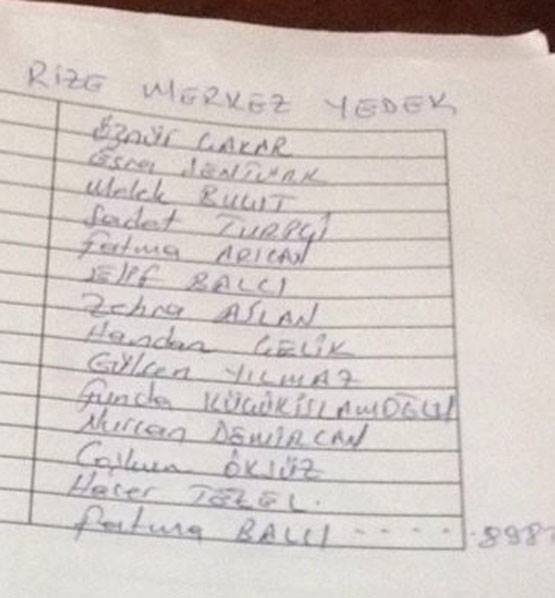 RİZE MERKEZ YEDEK
Öznür ÇAKAR
Esra
Melek BULUT
Sedat TURPÇİ
Fatma ARICAN
Elif BALCI
Zehra ASLAN
Handan ÇELİK
Gülşen YILMAZ
Funda KÜÇÜKİSLAMOĞLU
Nurcan DEMİRCAN
ÖKSÜZ
Hacer TEZEL.
Fatma BALCI - - - - . 898